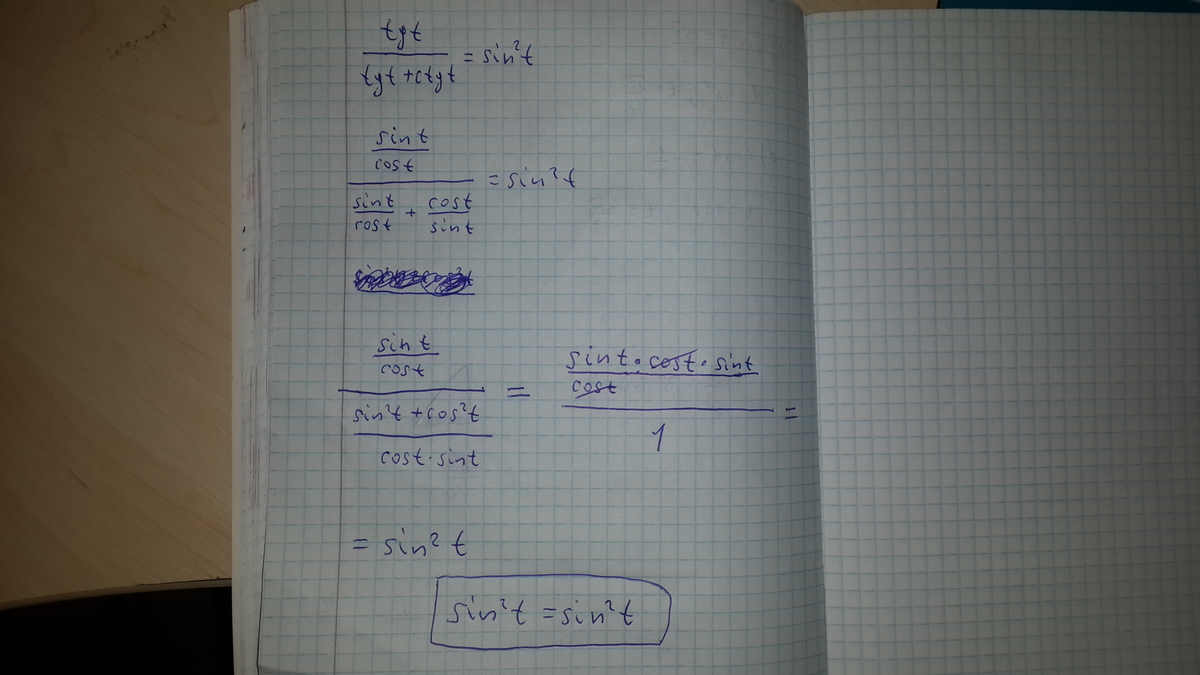 tgt / (tgt + ctgt) = sin²t
(sin t / cos t) / (sint / cost + cost / sint) = sin²t
(sin t / cost) / ((sin²t + cos²t) / (cost · sint)) = (sint · cost · sint / cost) / 1 =
= sin² t
sin²t = sin²t